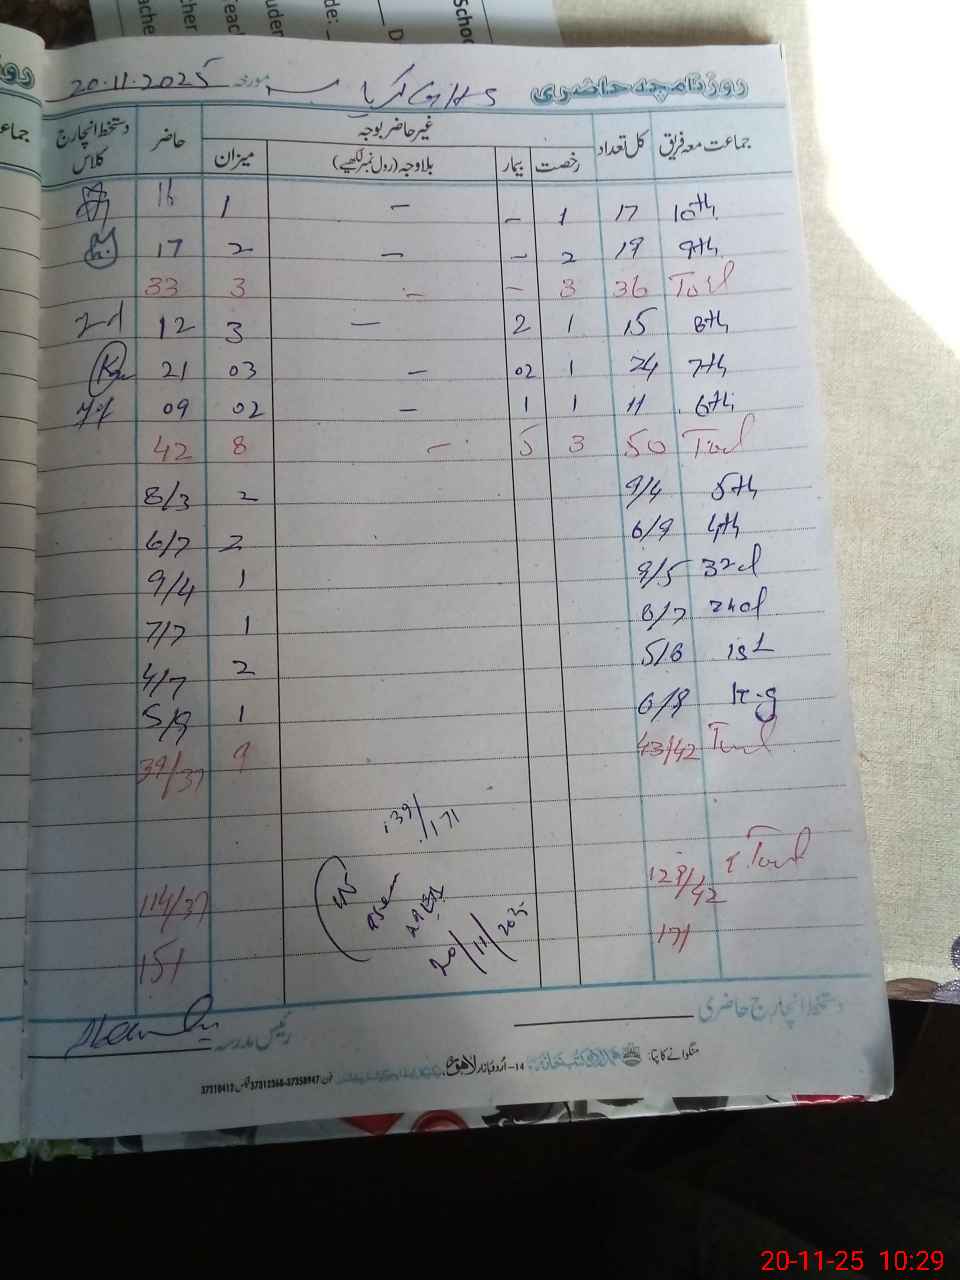 روزنامچہ حاضری GGHS مورخہ 20.11.2025
جماعت معہ فریق کل تعداد غیر حاضر بوجہ حاضر دستخط انچارج کلاس
رخصت بیمار بلاوجہ (رول نمبر لکھیے) میزان
10th 17 1 - - 1 16
9th 19 2 - - 2 17
Total 36 3 - - 3 33
8th 15 1 2 - 3 12
7th 24 1 02 - 03 21
6th 11 1 1 - 02 09
Total 50 3 5 - 8 42
5th 9/4 2 8/3
4th 6/9 2 6/7
3rd 9/5 1 9/4
2nd 8/7 1 7/7
1st 5/8 2 4/7
K.g 6/9 1 5/9
Total 43/42 9 39/37
139/171
G.Total 129/42 114/37
171 151
20/11/2025
دستخط انچارج حاضری
رئیس مدرسہ
منگوانے کا پتا:
14-اردو بازار لاہور
20-11-25 10:29